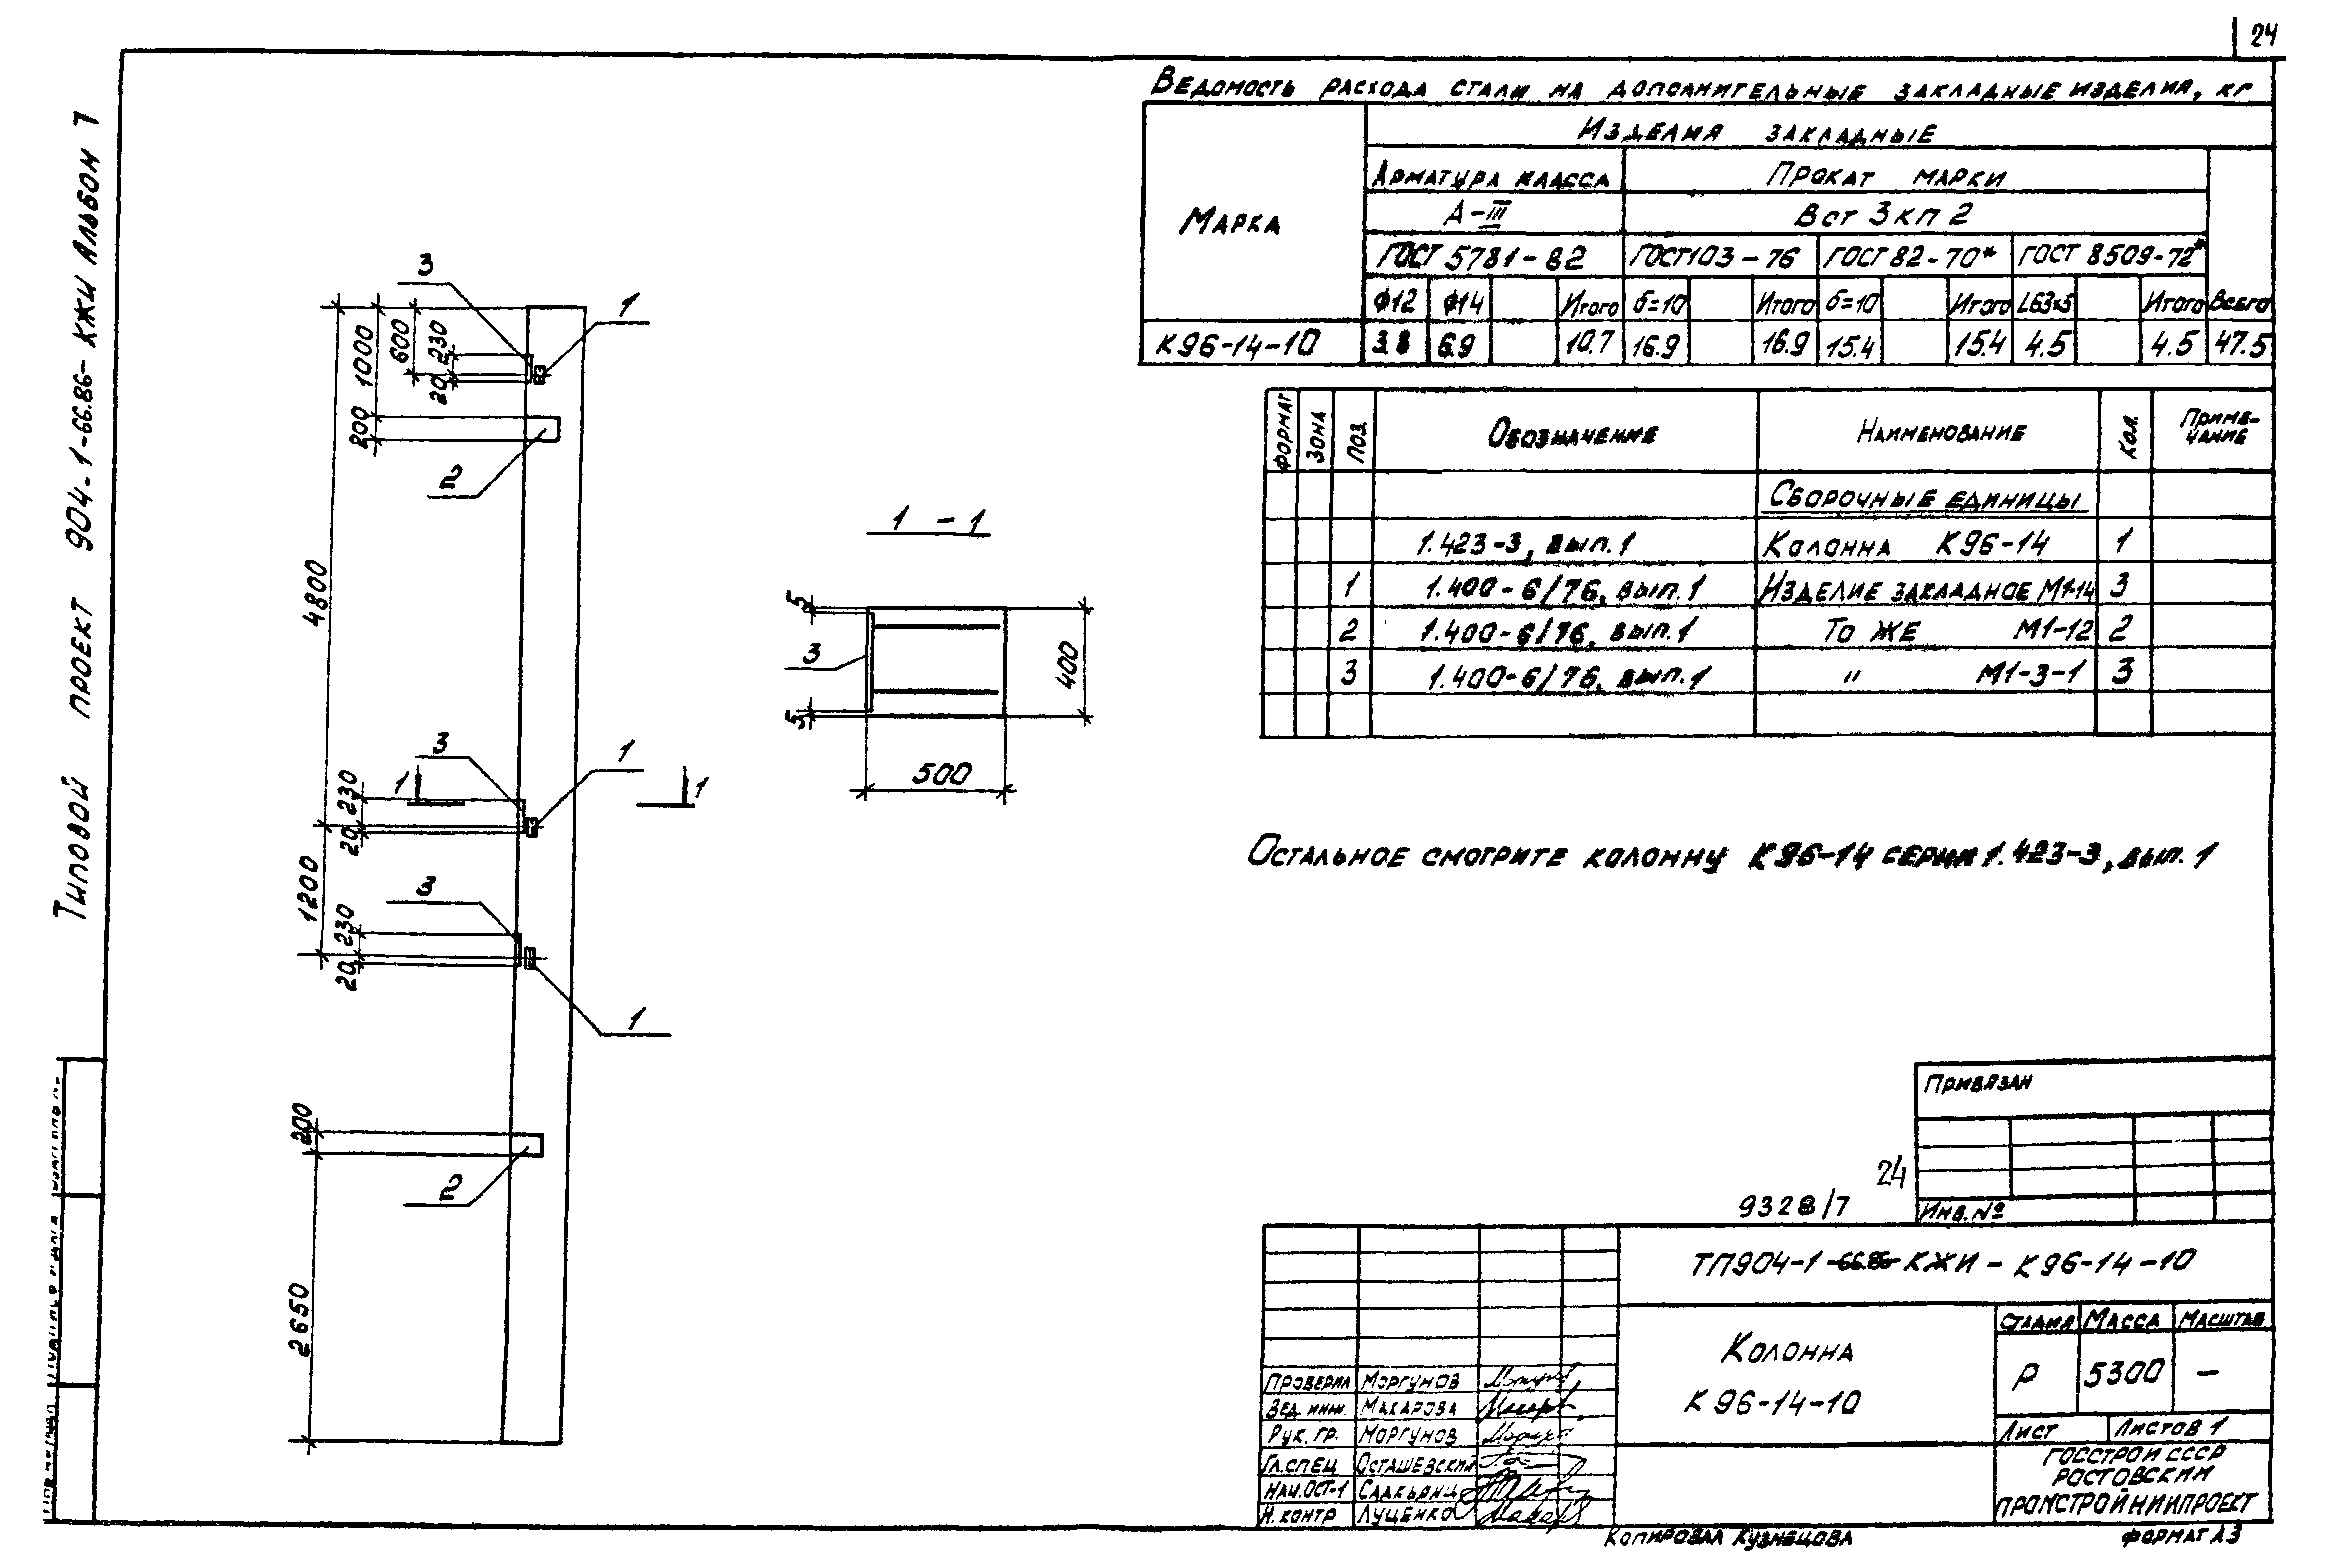 24
Типовой проект 904-1-66.86-КЖИ Альбом 7
Ведомость расхода стали на дополнительные закладные изделия, кг
Марка
Изделия закладные
Арматура класса
Прокат марки
А-III
Вст 3кп2
ГОСТ 5781-82
ГОСТ103-76
ГОСТ82-70*
ГОСТ 8509-72*
ф12 ф14 Итого δ=10 Итого δ=10 Итого L63x5 Итого Всего
К96-14-10 3.8 6.9 10.7 16.9 16.9 15.4 15.4 4.5 4.5 47.5
Формат Зона Поз. Обозначение Наименование Кол. Приме-
чание
Сборочные единицы
1.423-3, вып.1 Колонна К96-14 1
1 1.400-6/76, вып.1 Изделие закладное М1-14 3
2 1.400-6/76, вып.1 То же М1-12 2
3 1.400-6/76, вып.1 " М1-3-1 3
Остальное смотрите колонну К96-14 серии 1.423-3, вып. 1
3
1
1000
600
230
20
200
2
4800
3
1
1
1
230
20
1200
3
230
20
1
200
2
2650
1 - 1
5
3
5
400
500
Привязан
Инв.№
24
9328/7
ТП904-1-66.86-КЖИ-К96-14-10
Колонна
К96-14-10
Стадия Масса Масштаб
Р 5300 –
Лист Листов 1
Госстрой СССР
Ростовский
Промстройниипроект
Проверил Моргунов
Вед. инж. Макарова
Рук. гр. Моргунов
Гл.спец Осташевский
Нач.ОСТ-1
Н.контр Луценко
Копировал Кузнецова
Формат А3